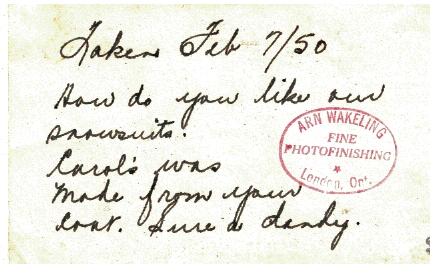 Taken Feb 7/50
How do you like our
snowsuits.
Carol's was
made from your
coat. Sure a dandy.
ARN WAKELING
FINE
PHOTOFINISHING
London, Ont.